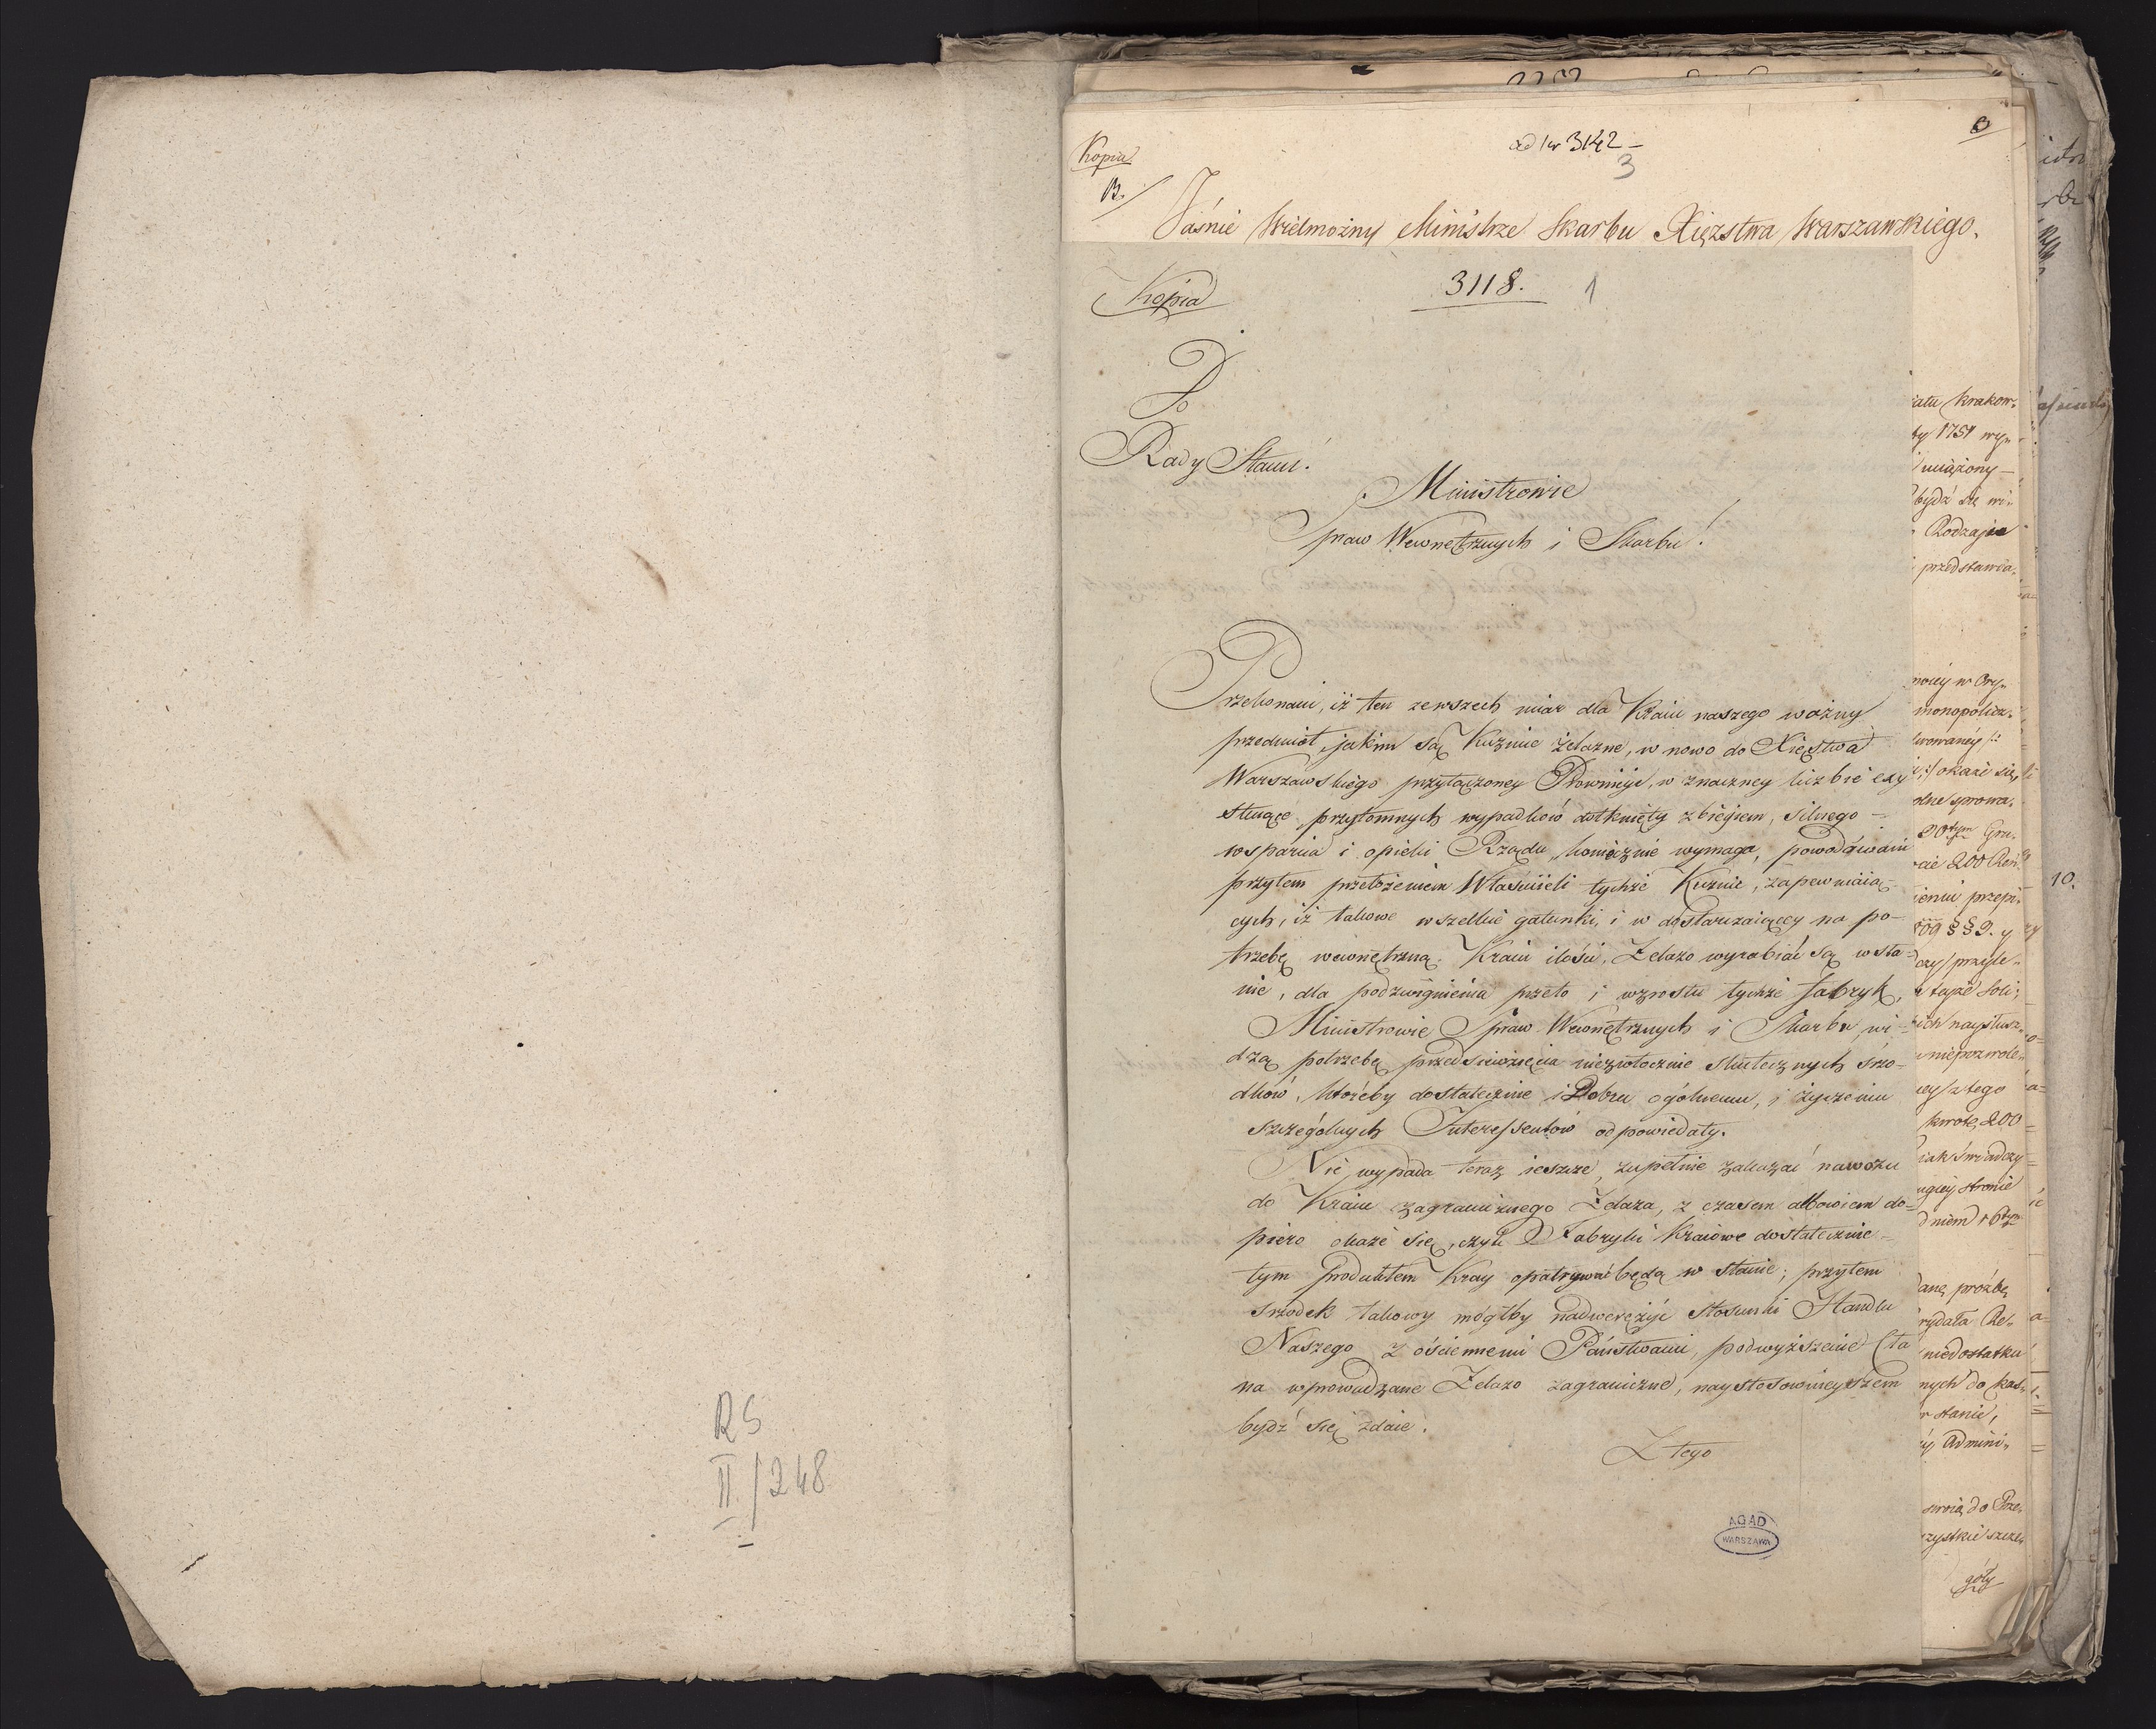 RS
II/248
Kopia
ad Nr 3142 –
3
B.
Jaśnie Wielmożny Ministrze Skarbu Xięzstwa Warszawskiego.
Kopia
3118.
1
Do
Rady Stanu.
Ministrowie
Spraw Wewnętrznych i Skarbu!
Przekonani, iż ten zewszech miar dla Kraiu naszego ważny
przedmiot, jakim są Kuźnie żelazne, w nowo do Xięstwa
Warszawskiego przyłączoney Prowincyi, w znaczney liczbie exy
stuiące, przytomnych wypadków dotknięty zbiegiem, silnego –
wsparcia i opieki Rządu koniecznie wymaga, powodowani
przytem przełożeniem Właścicieli tychże Kuźnic, zapewniaią–
cych, iż takowe wszelkie gatunki, i w dostarczaiącey na po–
trzebę wewnętrzną Kraiu ilości, Żelazo wyrabiać są w sta=
nie, dla podzwignienia przeto i wzrostu tychże fabryk,
Ministrowie Spraw Wewnętrznych i Skarbu, wi=
dzą potrzebę przedsięwzięcia niezwłocznie skutecznych śrzo–
dków, któreby dostatecznie i Dobru ogólnemu, i życzeniu
szczególnych Interessentów odpowiedały.
Nie wypada teraz ieszcze, zupełnie zakazać nawozu
do Kraiu zagranicznego Żelaza, z czasem albowiem do=
piero okaże się, czyli Fabryki Kraiowe dostatecznie –
tym produktem Kray opatrywać będą w stanie; przytem
srzodek takowy mógłby nadwerężyć stosunki Handlu
Naszego z ościennemi Państwami, podwyższenie Cła
na wprowadzane Żelazo zagraniczne, naystosownieyszem
bydź się zdaie.
Z tego
AGAD
WARSZAWA
atu Krakow:
ty 1751 wy„
uiążony –
bydź się wi„
Rodzaju
przedstawia„
mocy w Ory„
monopolicz„
okaże się,
olne sprowa„
20tym Gru„
cie 200 Reń
ieniu przepi„
809 §§ 9. y
przyle„
także soli„
ich naysłusz„
niepozwole„
z tego
kwotę 200
iak świadczy
ugiey stronie
dniem 16tym
aną prośbę
rydała Re„
niedostatku
nych do Kas„
w stanie,
Admini„
swoią do Prze„
zystkie szcze„
góły
10.